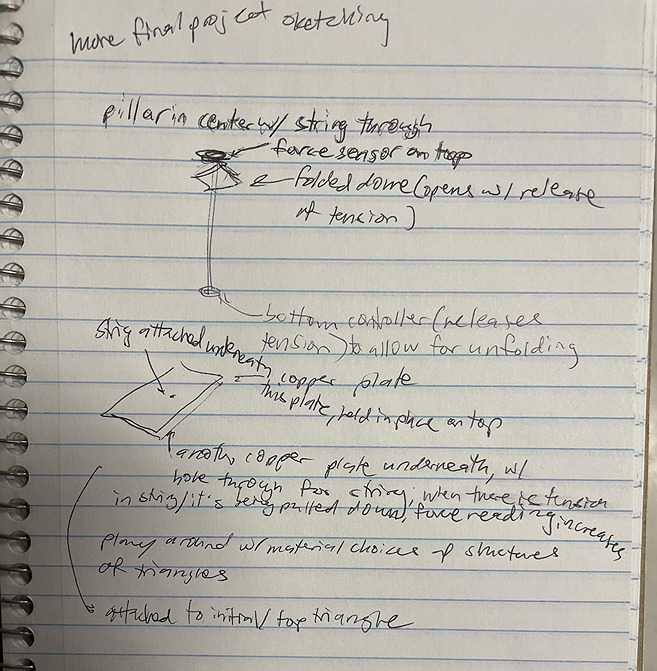 more final project sketching
pillar in center w/ string through
force sensor on top
folded dome (opens w/ release
of tension)
bottom controller (releases
tension) to allow for unfolding
string attached underneath
copper plate
this plate, held in place on top
another copper plate underneath, w/
hole through for string, when there is tension
in string/it's being pulled down, force reading increates
play around w/ material choices & structures
of triangles
attached to initial/top triangle